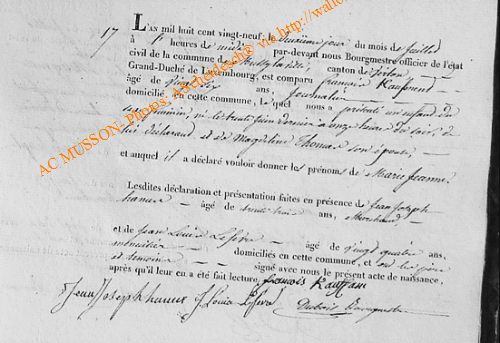 17
L'AN mil huit cent vingt-neuf, le deuxième jour du mois de juillet
à heures de midi par-devant nous Bourgmestre officier de l'état
civil de la commune de canton de
Grand-Duché de Luxembourg, est comparu françois Kauffment
âgé de ans, Journalier
domicilié, en cette commune, lequel nous a présenté un enfant du
sexe féminin, né le trente juin dernier à onze heures du soir, de
lui déclarant et de Magdeline Thomas son épouse,
et auquel il a déclaré vouloir donner les prénoms de Marie Jeanne.
Lesdites déclaration et présentation faites en présence de Jean Joseph
hanus âgé de trente trois ans, Marchand
et de Jean Louis Lefèvre âgé de vingt quatre ans,
domiciliés en cette commune, et ont les père
et témoins signé avec nous le présent acte de naissance,
après qu'il leur en a été fait lecture. françois Kauffman
Jean Joseph hanus J Louis Lefevre
AC MUSSON- Photos @ via http://